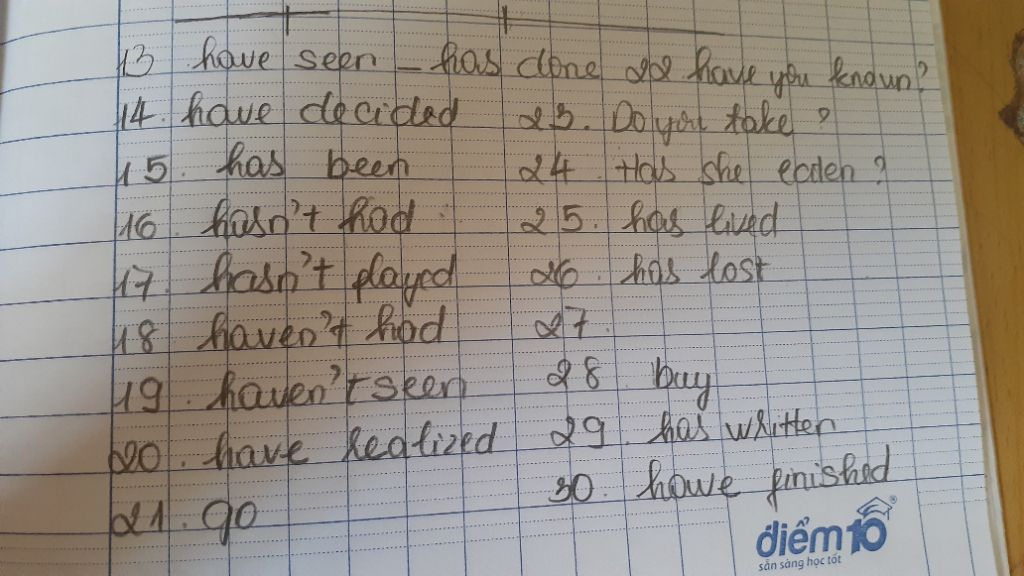 13 have seen - has done 22 have you known?
14. have decided 23. Do you take?
15. has been 24. Has she eaten?
16. hasn't had 25. has lived
17. hasn't played 26. has lost
18 haven't had 27.
19. haven't seen 28. buy
20. have realized 29. has written
21. go 30. have finished
điểm10
sẵn sàng học tốt